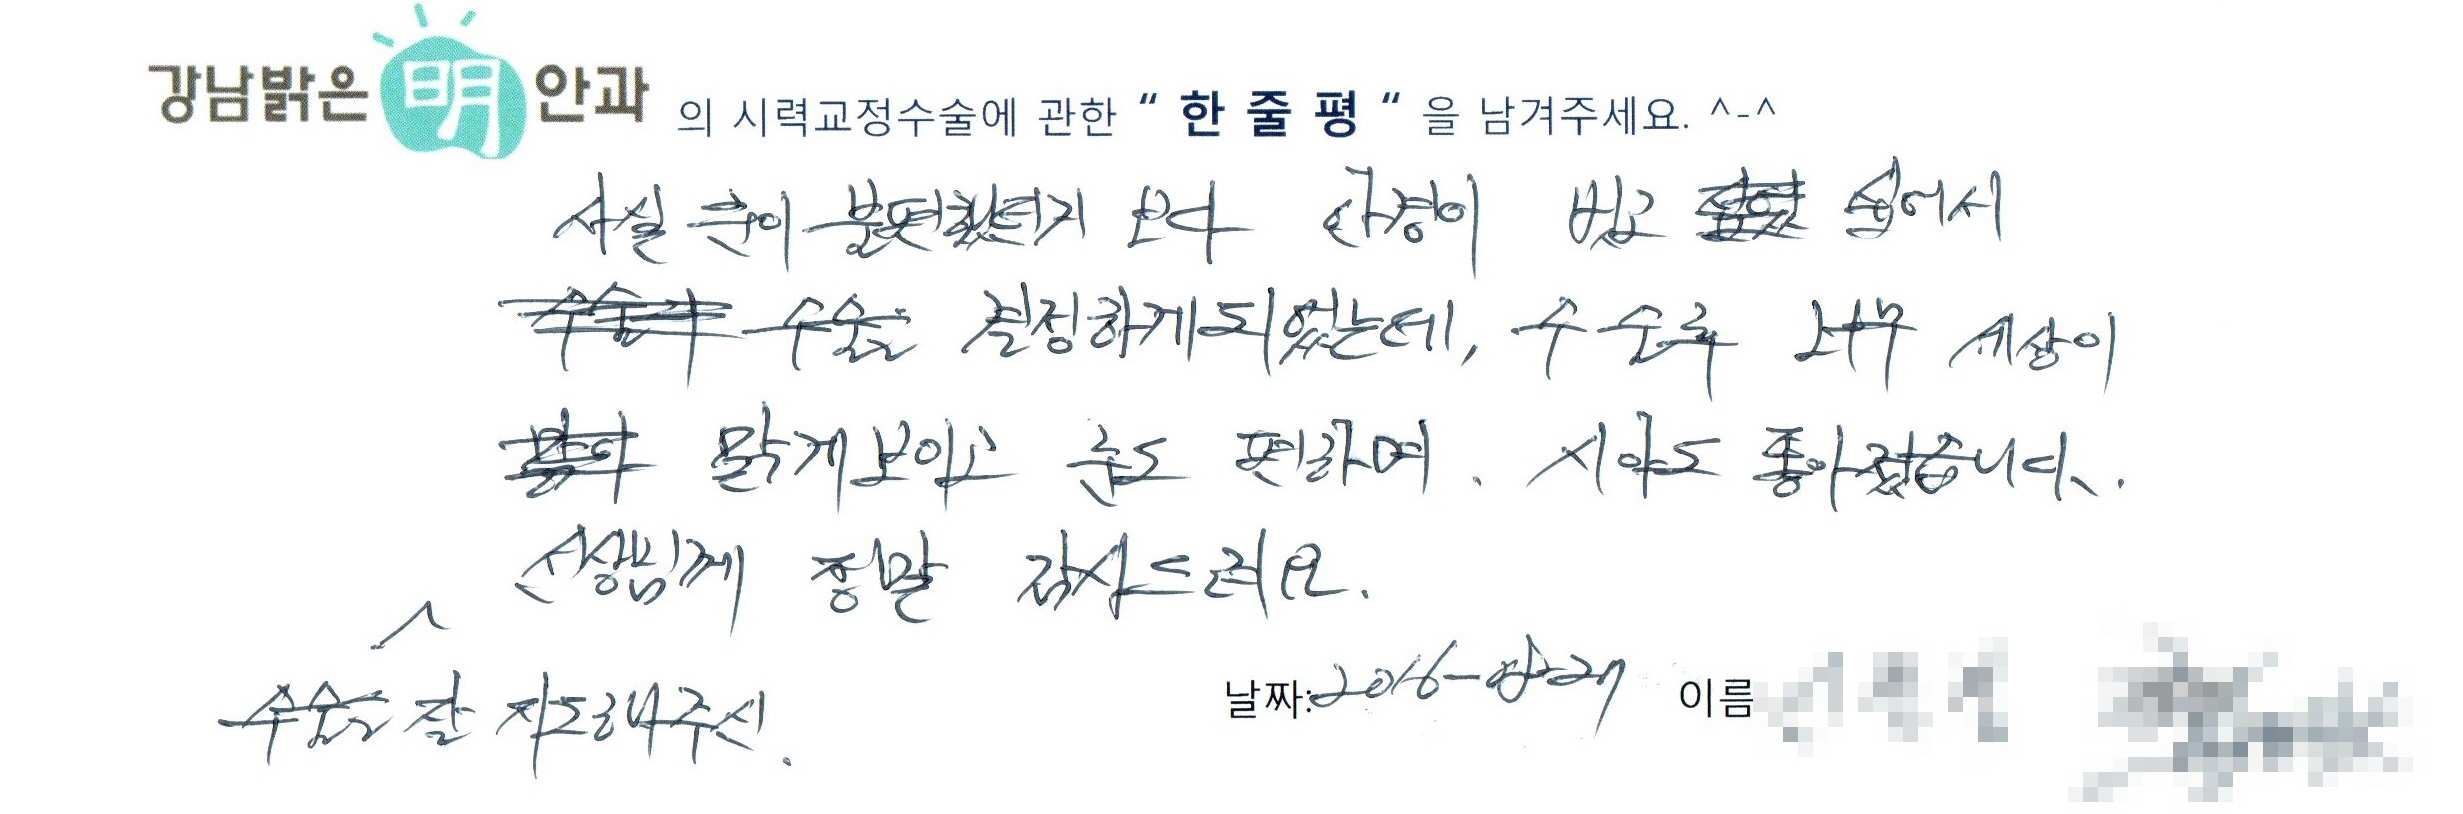 강남밝은明안과 의 시력교정수술에 관한 “ 한 줄 평 “ 을 남겨주세요. ^-^
사실 눈이 불편했던지 보다 안경이 벗고 싶어서
수술을 결정하게되었는데, 수술후 너무 세상이
맑게보이고 눈도 편하며. 시야도 좋아졌습니다.
선생님께 정말 감사드려요.
수술을 잘 지도해주신.
날짜: 2016- 이름